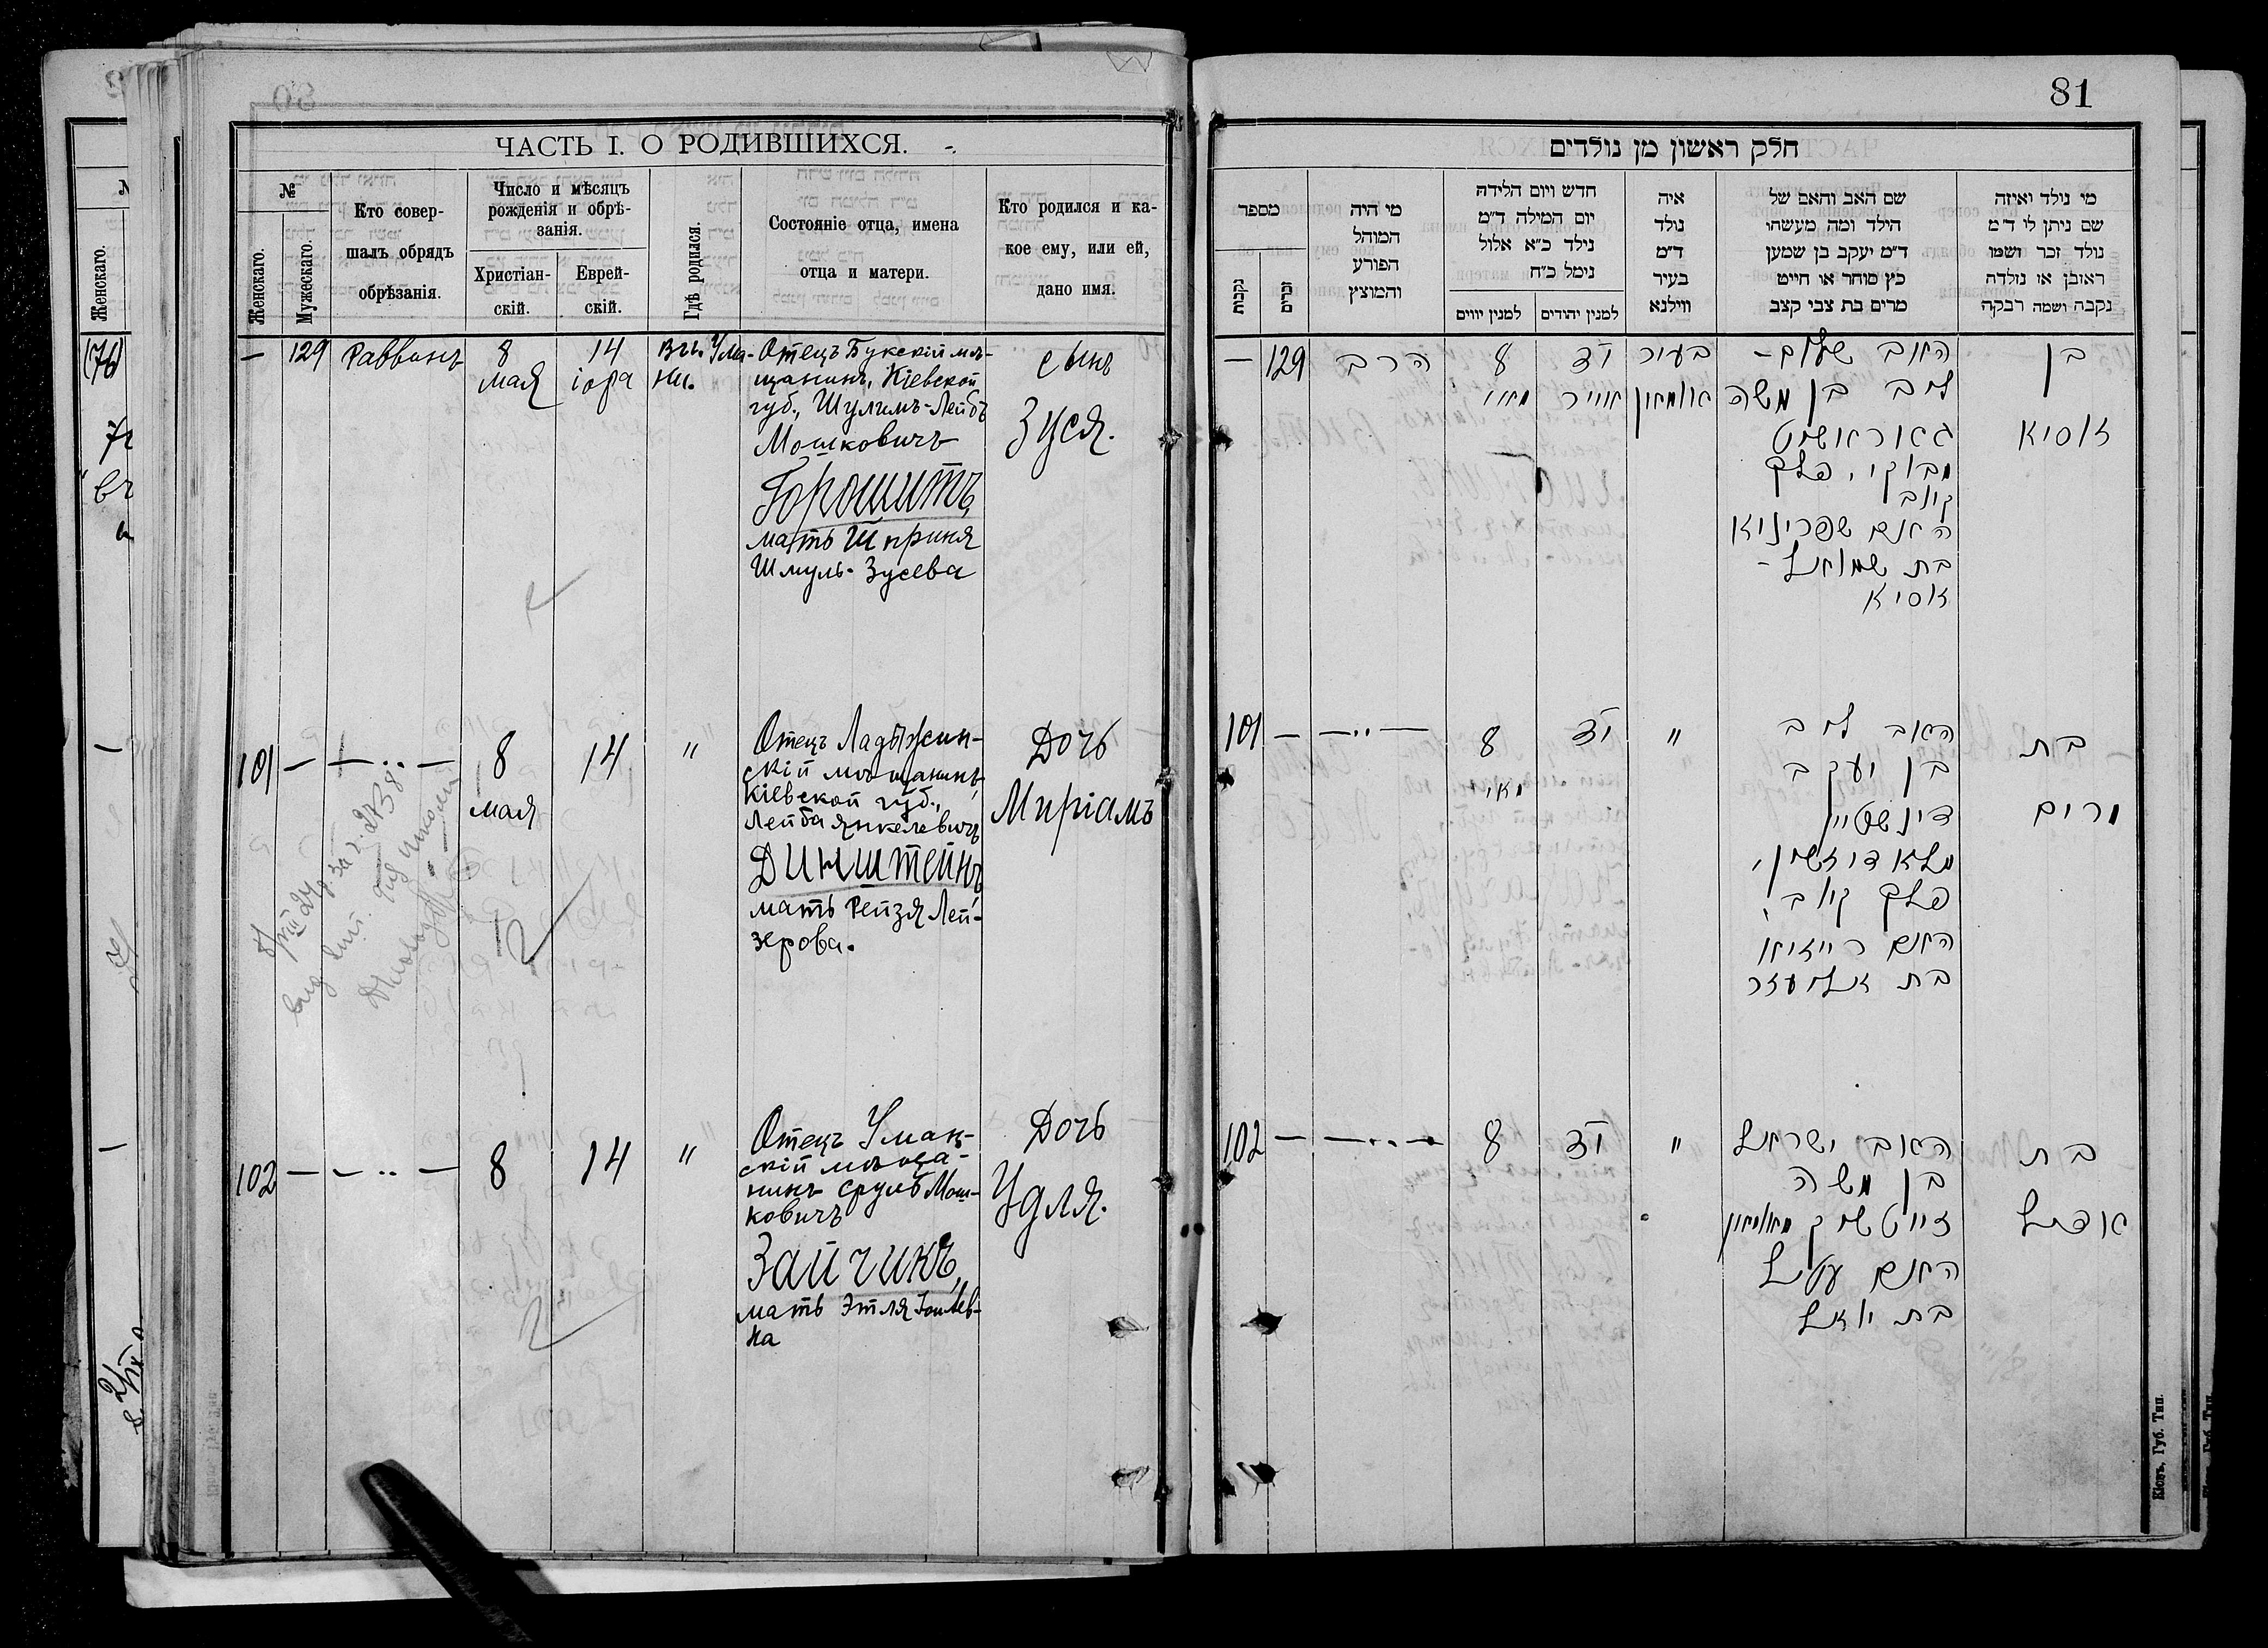 81
ЧАСТЬ I. О РОДИВШИХСЯ.
№
Женскаго.
Мужескаго.
Кто совер-
шалъ обрядъ
обрѣзанія.
Число и мѣсяцъ
рожденія и обрѣ-
занія.
Христіан-
скій.
Еврей-
скій.
Гдѣ родился.
Состояніе отца, имена
отца и матери.
Кто родился и ка-
кое ему, или ей,
дано имя.
— 129 Раввинъ 8 мая 14 іора
въ г. Ума-
ни.
Отецъ Букскій мѣ-
щанинъ, Кіевской
губ., Шулимъ-Лейбъ
Мошковичъ
Горошитъ,
мать Шприня
Шмуль-Зусева
сынъ
Зуся.
101 — — ·· — 8 мая 14 "
Отецъ Ладыжин-
скій мѣщанинъ,
Кіевской губ.,
Лейба Янкелевичъ
Динштейнъ,
мать Рейзя Лей-
зерова.
Дочь
Миріамъ
102 — — ·· — 8 14 "
Отецъ Уман-
скій мѣща-
нинъ Сруль Мош-
ковичъ
Зайчикъ,
мать Этля
на
Дочь
Удля.
חלק ראשון מן נולדים
מספר
נקבות
זכרים
מי היה
המוהל
הפורע
והמוצץ
חדש ויום הלידה
יום המילה ד״מ
נילד כ״א אלול
נימל כ״ח
למנין יווים
למנין יהודים
איה
נולד
ד״מ
בעיר
ווילנא
שם האב והאם של
הילד ומה מעשהו
ד״מ יעקב בן שמען
כץ סוחר או חייט
מרים בת צבי קצב
מי נולד ואיזה
שם ניתן לו ד״מ
נולד זכר ושמו
ראובן או נולדה
נקבה ושמה רבקה
— 129 הרב 8 מאי יד אייר
בעיר
אומאן
האב שלום-
ליב בן משה
גאראשיט
מבוקי, פלך
קיוב
האם שפרינזא
בת שמואל-
זוסיא
בן
זוסיא
101 — — ·· — 8 מאי יד "
האב ליב
בן יעקב
דינשטיין
פלך קיוב,
האם רייזא
בת אליעזר
בת
מרים
102 — — ·· — 8 יד "
האב ישראל
בן משה
זייטשיק מאומאן
האם עטיל
בת יואל
בת
אודיל
Кіевъ, Губ. Тип.